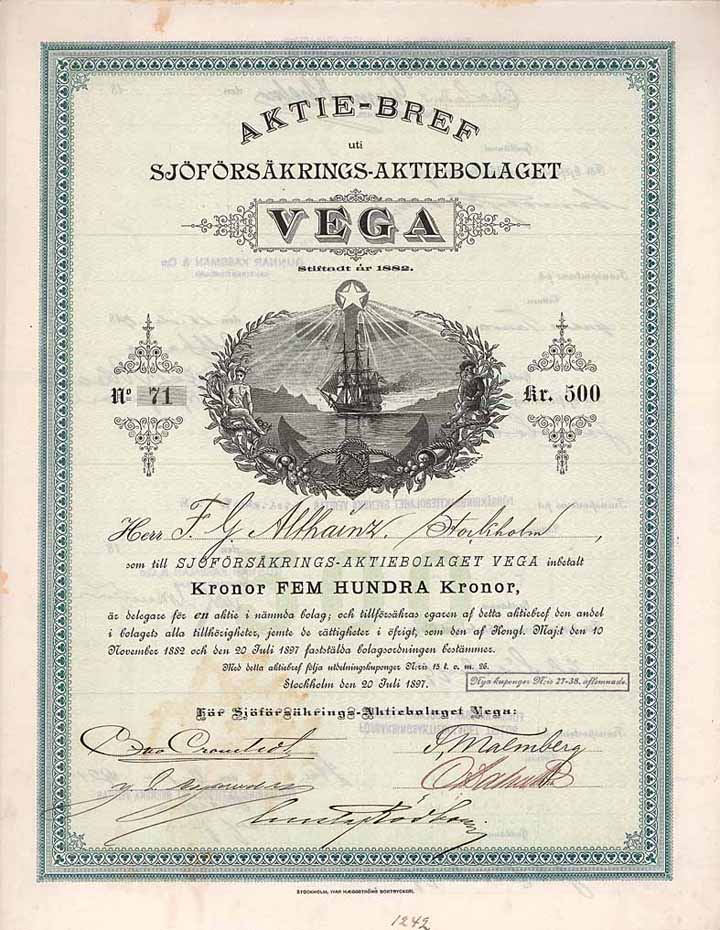 AKTIE-BREF
uti
SJÖFÖRSÄKRINGS-AKTIEBOLAGET
VEGA
Stiftadt år 1882.
No 71
Kr. 500
Herr F. G. Althainz. Stockholm,
som till SJÖFÖRSÄKRINGS-AKTIEBOLAGET VEGA inbetalt
Kronor FEM HUNDRA Kronor,
är delegare för en aktie i nämnda bolag; och tillförsäkras egaren af detta aktiebref den andel
i bolagets alla tillhörigheter, jemte de rättigheter i öfrigt, som den af Kongl. Maj:t den 10
November 1882 och den 20 Juli 1897 fastställda bolagsordningen bestämmer.
Med detta aktiebref följa utdelningskuponger N:ris 15 t. o. m. 26.
Nya kuponger N:ris 27-38. aflemnade.
Stockholm den 20 Juli 1897.
För Sjöförsäkrings-Aktiebolaget Vega:
Cronstedt
Malmberg
STOCKHOLM, IVAR HÆGGSTRÖMS BOKTRYCKERI.
1242